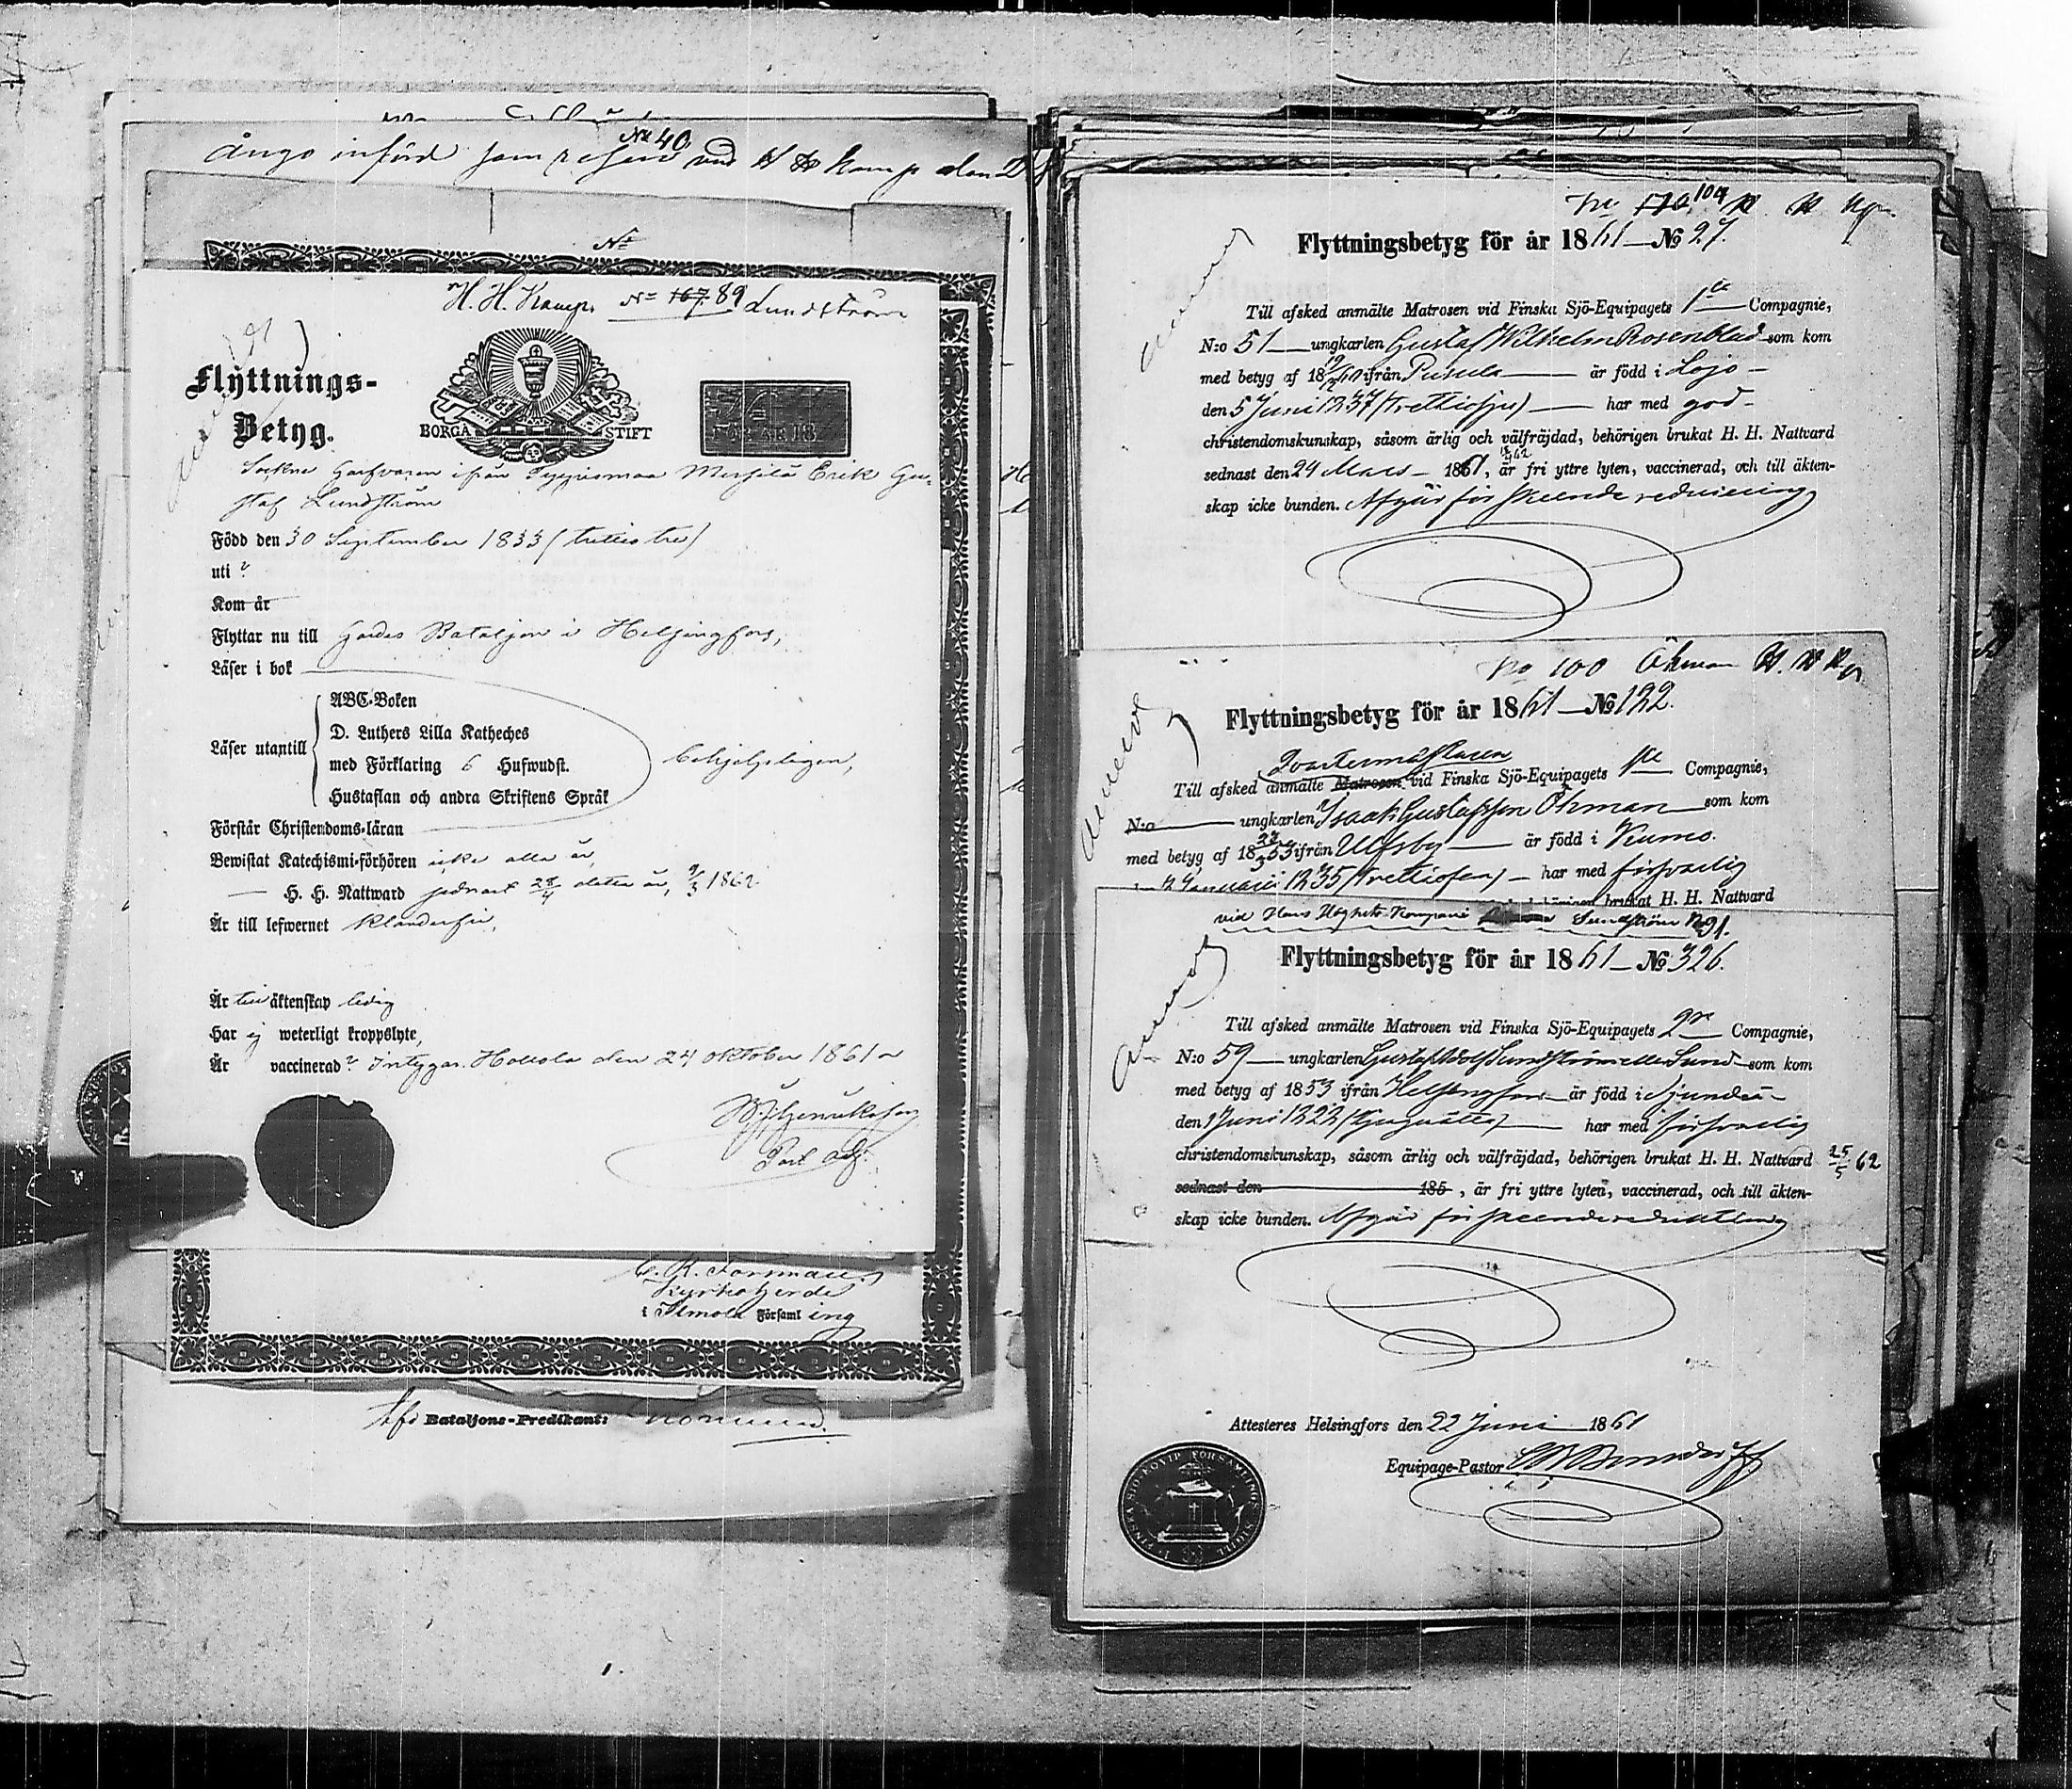 No 40
ångo införd som reserv vid H H Komp den
No
H. H. Komp. No 167. 89 Lundström
Flyttnings-
Betyg.
BORGÅ STIFT
FÖR ÅR 18
Sockne Garfvaren ifrån Mersilä Erik Gu-
staf Lundström
Född den 30 September 1833 (trettio tre)
uti ?
Kom år
Flyttar nu till Gardes Bataljon i Helsingfors,
Läser i bok
Läser utantill
ABC-Boken
D. Luthers Lilla Katheches
med Förklaring 6 Hufwudst.
Hustaflan och andra Skriftens Språk
behjelpligen,
Förstår Christendoms-läran
Bewistat Katechismi-förhören icke alla år,
H. H. Nattward sednast 28/4 detta år, 9/3 1862
Är till lefwernet klanderfri,
Är till äktenskap ledig
Har ej weterligt kroppslyte,
Är vaccinerad ? Intygar. Hollola den 24 oktober 1861
Past. adj.
C. R. Forsman
Kyrkoherde
i Ilmola Församling
Bataljons-Predikant:
No 170 104 H. H. Kp.
Flyttningsbetyg för år 1861 — No 27.
Till afsked anmälte Matrosen vid Finska Sjö-Equipagets 1ta Compagnie,
N:o 51 — ungkarlen Gustaf Wilhelm Rosenblad som kom
med betyg af 18 19/2 60 ifrån Pusula — är född i Lojo —
den 5 Juni 1837 (Trettiosju) — har med god
christendomskunskap, såsom ärlig och välfräjdad, behörigen brukat H. H. Nattvard
sednast den 24 Mars — 1861, är fri yttre lyten, vaccinerad, och till äkten-
skap icke bunden. Afgår för skeende reducering
No 100 Öhman H. H. Kp
Flyttningsbetyg för år 1861 — No 122.
Qvartermästaren
Till afsked anmälte Matrosen vid Finska Sjö-Equipagets 1sta Compagnie,
N:o — ungkarlen Isaak Gustafsson Öhman — som kom
med betyg af 1853 ifrån Ulfsby — är född i Kumo
Januarii 1835 (Trettiofem) — har med försvarlig
brukat H. H. Nattvard
vid Hans Höghets Kompani Sundström No 91.
Flyttningsbetyg för år 1861 — No 326.
Till afsked anmälte Matrosen vid Finska Sjö-Equipagets 2ra Compagnie,
N:o 59 — ungkarlen Gustaf Adolf Sundström eller Sund som kom
med betyg af 1853 ifrån Helsingfors är född i Sjundeå —
den 1 Juni 1828 (Tjuguåtta) — har med försvarlig
christendomskunskap, såsom ärlig och välfräjdad, behörigen brukat H. H. Nattvard 25/5 62
sednast den 185 , är fri yttre lyten, vaccinerad, och till äkten-
skap icke bunden. Afgår för skeende reducering
Attesteres Helsingfors den 22 Juni 1861
Equipage-Pastor